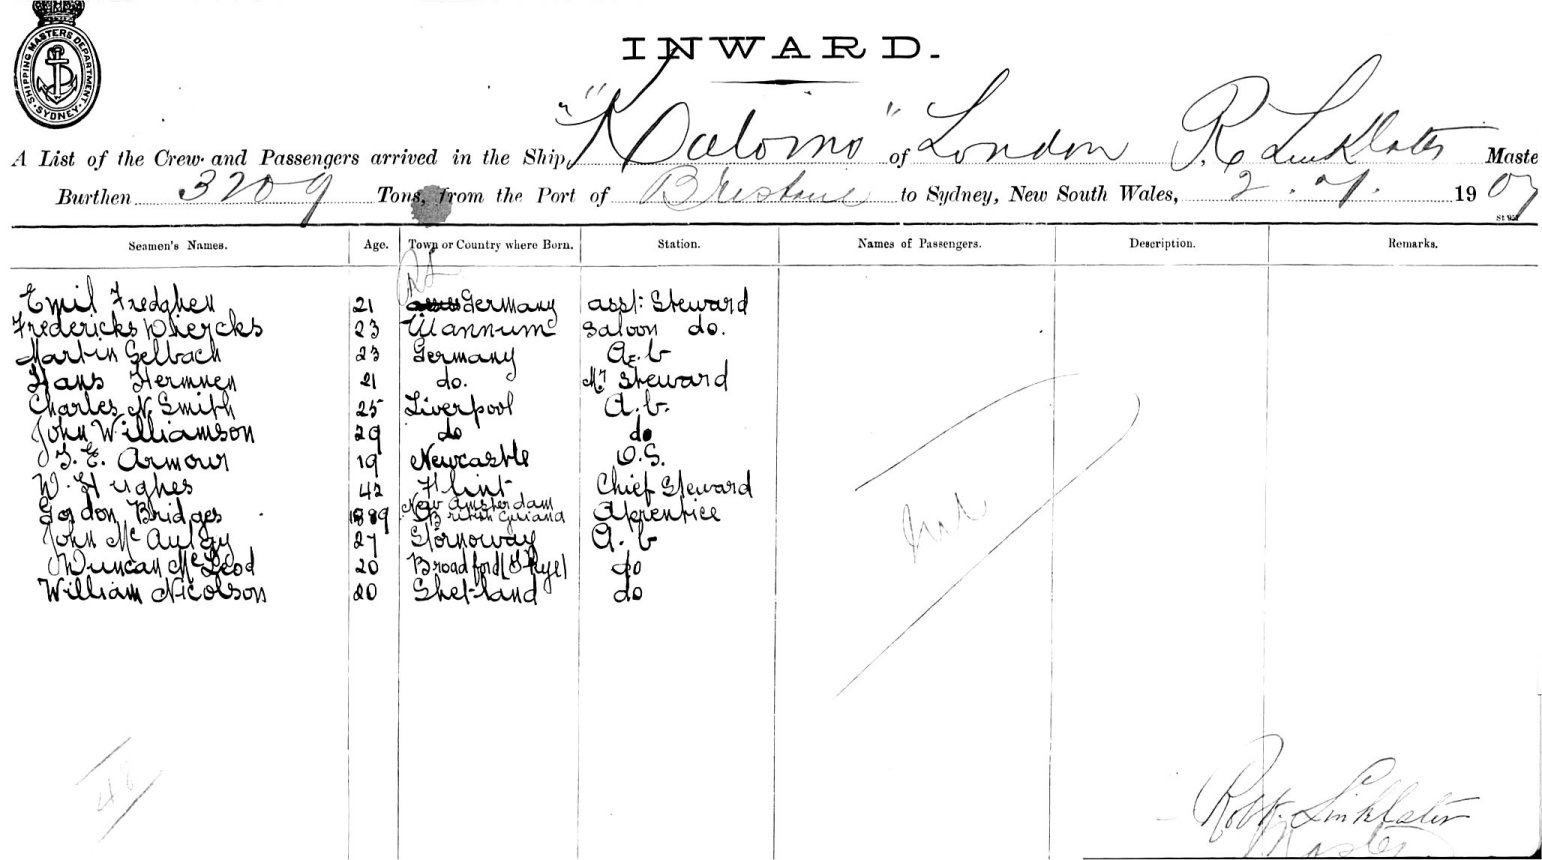 SHIPPING MASTERS DEPARTMENT. SYDNEY.
INWARD.
A List of the Crew and Passengers arrived in the Ship, "Kalomo" of London R. Linklater Maste
Burthen 3209 Tons, from the Port of Brisbane to Sydney, New South Wales, 2. 7. 1907
Seamen's Names. Age. Town or Country where Born. Station. Names of Passengers. Description. Remarks.
Emil Fredghen 21 Germany asst: Steward
Fredericks 23 Mannum Saloon do.
Martin Gelbach 23 Germany A.b
Hans Hermnen 21 do. Steward
Charles N. Smith 25 Liverpool A.b.
John Williamson 29 do do
E. Armour 19 Newcastle O.S.
W. Hughes 42 Flint Chief Steward
Gordon Bridges 1889 New Amsterdam British Guiana Aprentice
John McAulay 27 Stornoway A.b
Duncan McLeod 20 Broadford (Skye) do
William Nicolson 20 Shetland do
48
Robt. Linklater
Master